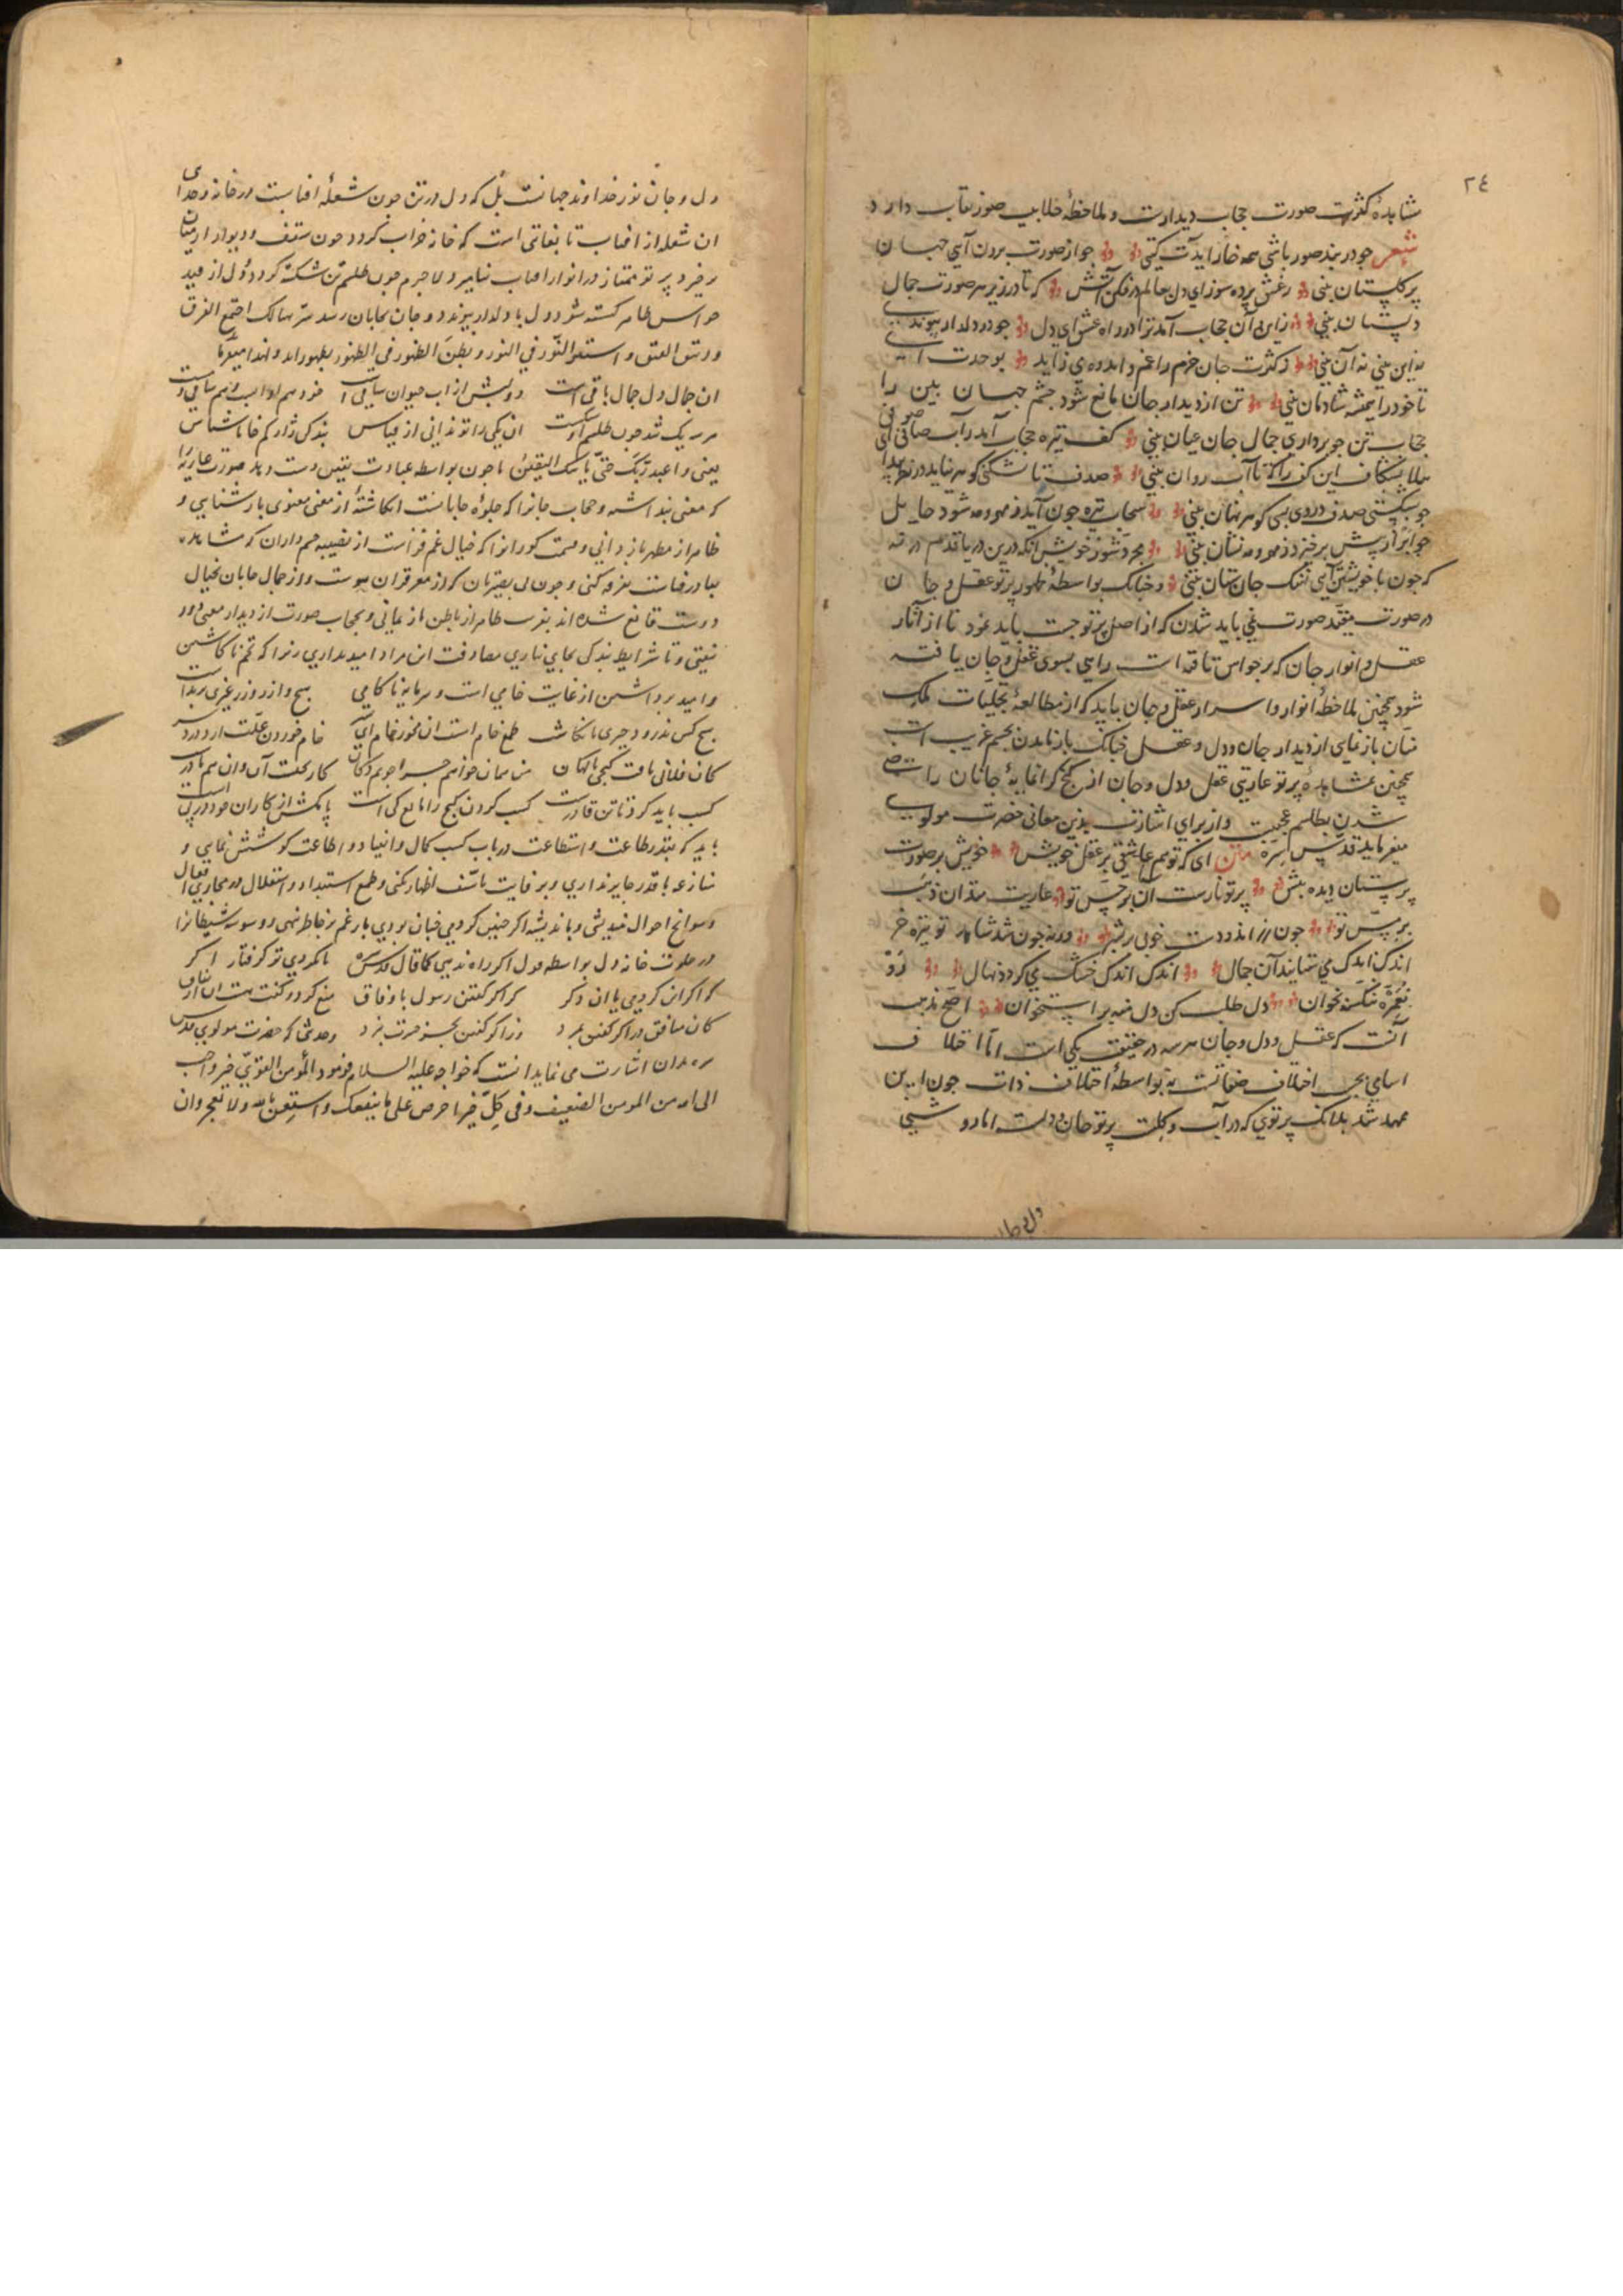 ٢٤
مشاهدهٔ کثرت صورت حجاب دیدارست و ملاحظهٔ جلابیب صور نقاب دارد
شعر جو در بند صور باشی همه خار ایدت کیتی جو از صورت برون آیی جهان
پر کلستان بینی ز عشق پرده سوز ای دل بعالم در فکن آتش که تا در زیر هر صورت جمال
دلستان بینی ز این و آن حجاب آمد ترا در راه عشق ای دل جو در دلدار پیوندی
نه این بینی نه آن بینی ز کثرت جان خرم را غم و اندوه می زاید بوحدت آی
تا خود را همیشه شادمان بینی تن از دیدار جان مانع شود جشم جهان بین را
حجاب تن جو برداری جمال جان عیان بینی کف تیره حجاب آمد بر آب صافی ای صوفی
هلا بشکاف این کف را که تا آب روان بینی صدف تا نشکنی کوهر نیاید در نظر پیدا
جو بشکستی صدف در وی بسی کوهر نهان بینی سحاب تیره جون آید ز مهر و مه شود حایل
جو ابر از پیش برخیزد ز مهر و مه نشان بینی مجرد شو ز خویش آنکه درین دریا قدم در نه
که جون با خویشتن آیی نهنک جان ستان بینی و جنانک بواسطهٔ ظهور پرتو عقل و جان
در صورت مقید صورت نمی باید شدن که از اصل پرتو جست باید نمود تا از آثار
عقل و انوار جان که بر حواس تافته است راهی بسوی عقل و جان یافته
شود همجنین ملاحظهٔ انوار و اسرار عقل و جان باید که از مطالعهٔ تجلیات ملک
منان باز نمانی از دیدار جان و دل و عقل جنانک باز ماندن بجسم غریب است
همجنین بمشاهدهٔ پرتو عاریتی عقل و دل و جان از کنج کرانمایهٔ جانان راضی
شدن بطلسم عجیبست و از برای اشارت بدین معانی حضرت مولوی
میفرماید قدس سره متن ای که تو هم عاشقی بر عقل خویش خویش بر صورت
پرستان دیده بیش پرتو عقلست آن بر حس تو عاریت میدان ذهب
بر مس تو جون زراندودست خوبی در بشر ورنه جون شد شاهد تو پیره خر
اندک اندک می ستاند آن جمال اندک اندک خشک می کردد نهال رو
نعمره ننکسه بخوان دل طلب کن دل منه بر استخوان اصح مذهب
آنست که عقل و دل و جان هر سه در حقیقت یکی است اما اختلاف
اسامی بحسب اختلاف صفاتست نه بواسطهٔ اختلاف ذات جون این
ممهد شد بدانک پرتوی که در آب و کلست پرتو جان و دلست اما روشنی
دل و جان نور خداوند جهانست بل که دل در تن جون شعلهٔ افتابست در خانه و جدایی
ان شعله از افتاب تا بغایتی است که خانه خراب نکردد جون سقف و دیوار از میان
بر خیزد پرتو ممتاز در انوار افتاب نیابی و لا جرم جون طلسم تن شکسته کردد و دل از قید
حواس ظاهر کسته شود دل با دلدار پیوندد و جان بجانان رسد سر سالک اجتمع الفرق
و رتق الفتق و استتر النور فی النور و بطن الظهور فی الظهور بظهور اید و انجا میفرماید
ان جمال دل جمال باقی است دولبش از آب حیوان ساقی است خود هم او آب و هم ساقی و مست
هر سه یک شد جون طلسم تو شکست ان یکی را تو ندانی از قیاس بندکی کن ژاژ کم خا ناشناس
یعنی و اعبد ربک حتی یاتیک الیقین تا جون بواسطه عبادت یقین دست دهد صورت عاریتی را
که معنی پنداشته و حجاب جانرا که جلوهٔ جانانست انکاشتهٔ از معنی معنوی باز شناسی و
ظاهر از مظهر باز دانی و قسمت کورانرا که خیال غم فزاست از نصیبه جشم داران که مشاهده
دوست قانع شده اند بفریب ظاهر از باطن باز نمانی و بحجاب صورت از دیدار معنی دور
نیفتی و تا شرایط بندکی بجای نیاری
و امید بر داشتن از غایت خامی است و سرمایهٔ ناکامی هیج وازر وزر غیری بر نداشت
هیج کس ندرود جیزی تا نکاشت طمع خام است ان مخور خام ای پسر خام خوردن علت ارد در بشر
کان فلانی یافت کنجی ناکهان من همان خواهم جرا جویم دکان کار بختست آن و ان هم نادرست
کسب باید کرد تا تن قادرست کسب کردن کنج را مانع کی است پا مکش از کار ان خود در پی است
باید که بقدر طاعت و استطاعت در باب کسب کمال و انقیاد و اطاعت کوشش نمایی و
منازعه با قدر جایز نداری و بر فایت تاسف اظهار نکنی و طمع استبداد و استقلال در مجاری افعال
و سوانح احوال نیندیشی و باندیشه اکر جنین کردمی جنان بودی بار غم بر خاطر ننهی و وسوسه شیطانرا
در خلوت خانه دل بواسطه قول اکر راه ندهی کما قال قدس سره تا نکردی تو کرفتار اکر
که اکر این کردمی یا ان دکر کز اکر کفتن رسول با وفاق منع کرد و کفت هست ان از نفاق
کان منافق در اکر کفتن بمرد وز اکر کفتن بجز حسرت نبرد و حدیثی که حضرت مولوی قدس
سره بدان اشارت می نماید انست که خواجه علیه السلام فرمود المؤمن القوی خیر و احب
الی الله من المومن الضعیف و فی کل خیر احرص علی ما ینفعک و استعن بالله و لا تعجز و ان